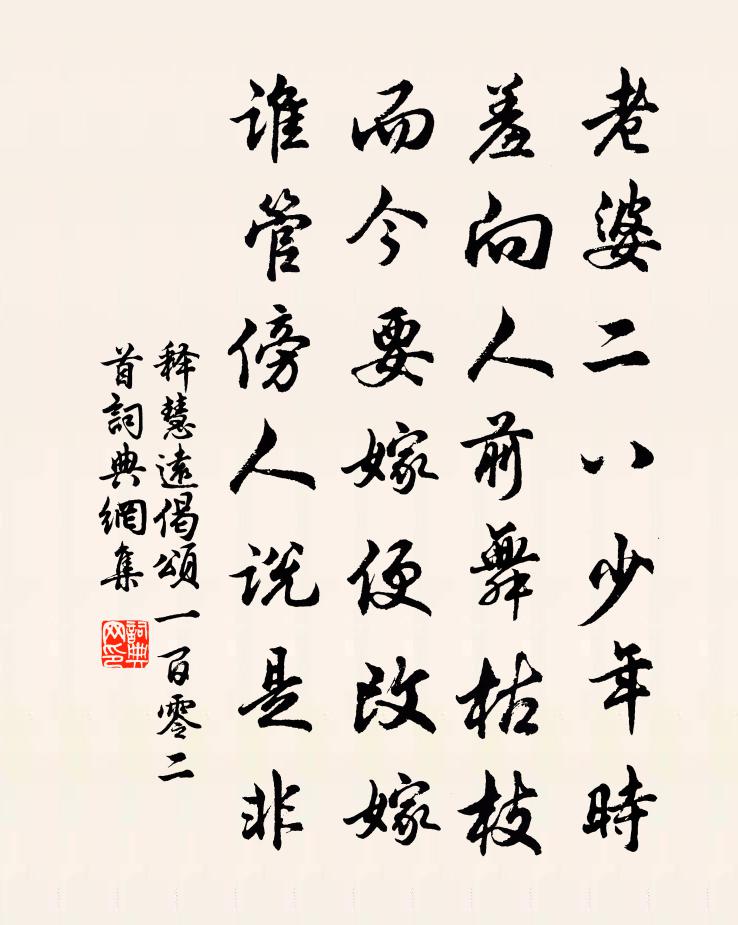 老婆二八少年時
羞向人前舞枯枝
而今要嫁便改嫁
誰管傍人说是非
释慧遠偈頌一百零二
首詞典網集
詞典
网印